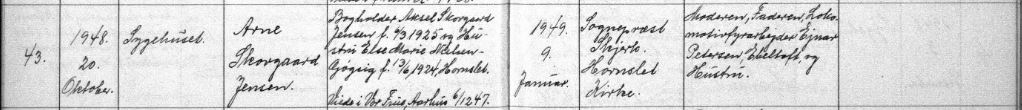 43.
1948.
20.
Oktober.
Sygehuset.
Arne
Skorgaard
Jensen.
Bogholder Aksel Skorgaard
Jensen f. 9/3 1925 og Hu-
stru Else Marie Nielsen-
f. 13/6 1924, Hornslet.
Viede i Vor Frue, Aarhus 6/12 47.
1949.
9.
Januar.
Sognepræst
Hjerl.
Hornslet
Kirke.
Moderen, Faderen, Loko-
motivfyrarbejder Ejnar
Petersen, Ebeltoft, og
Hustru.